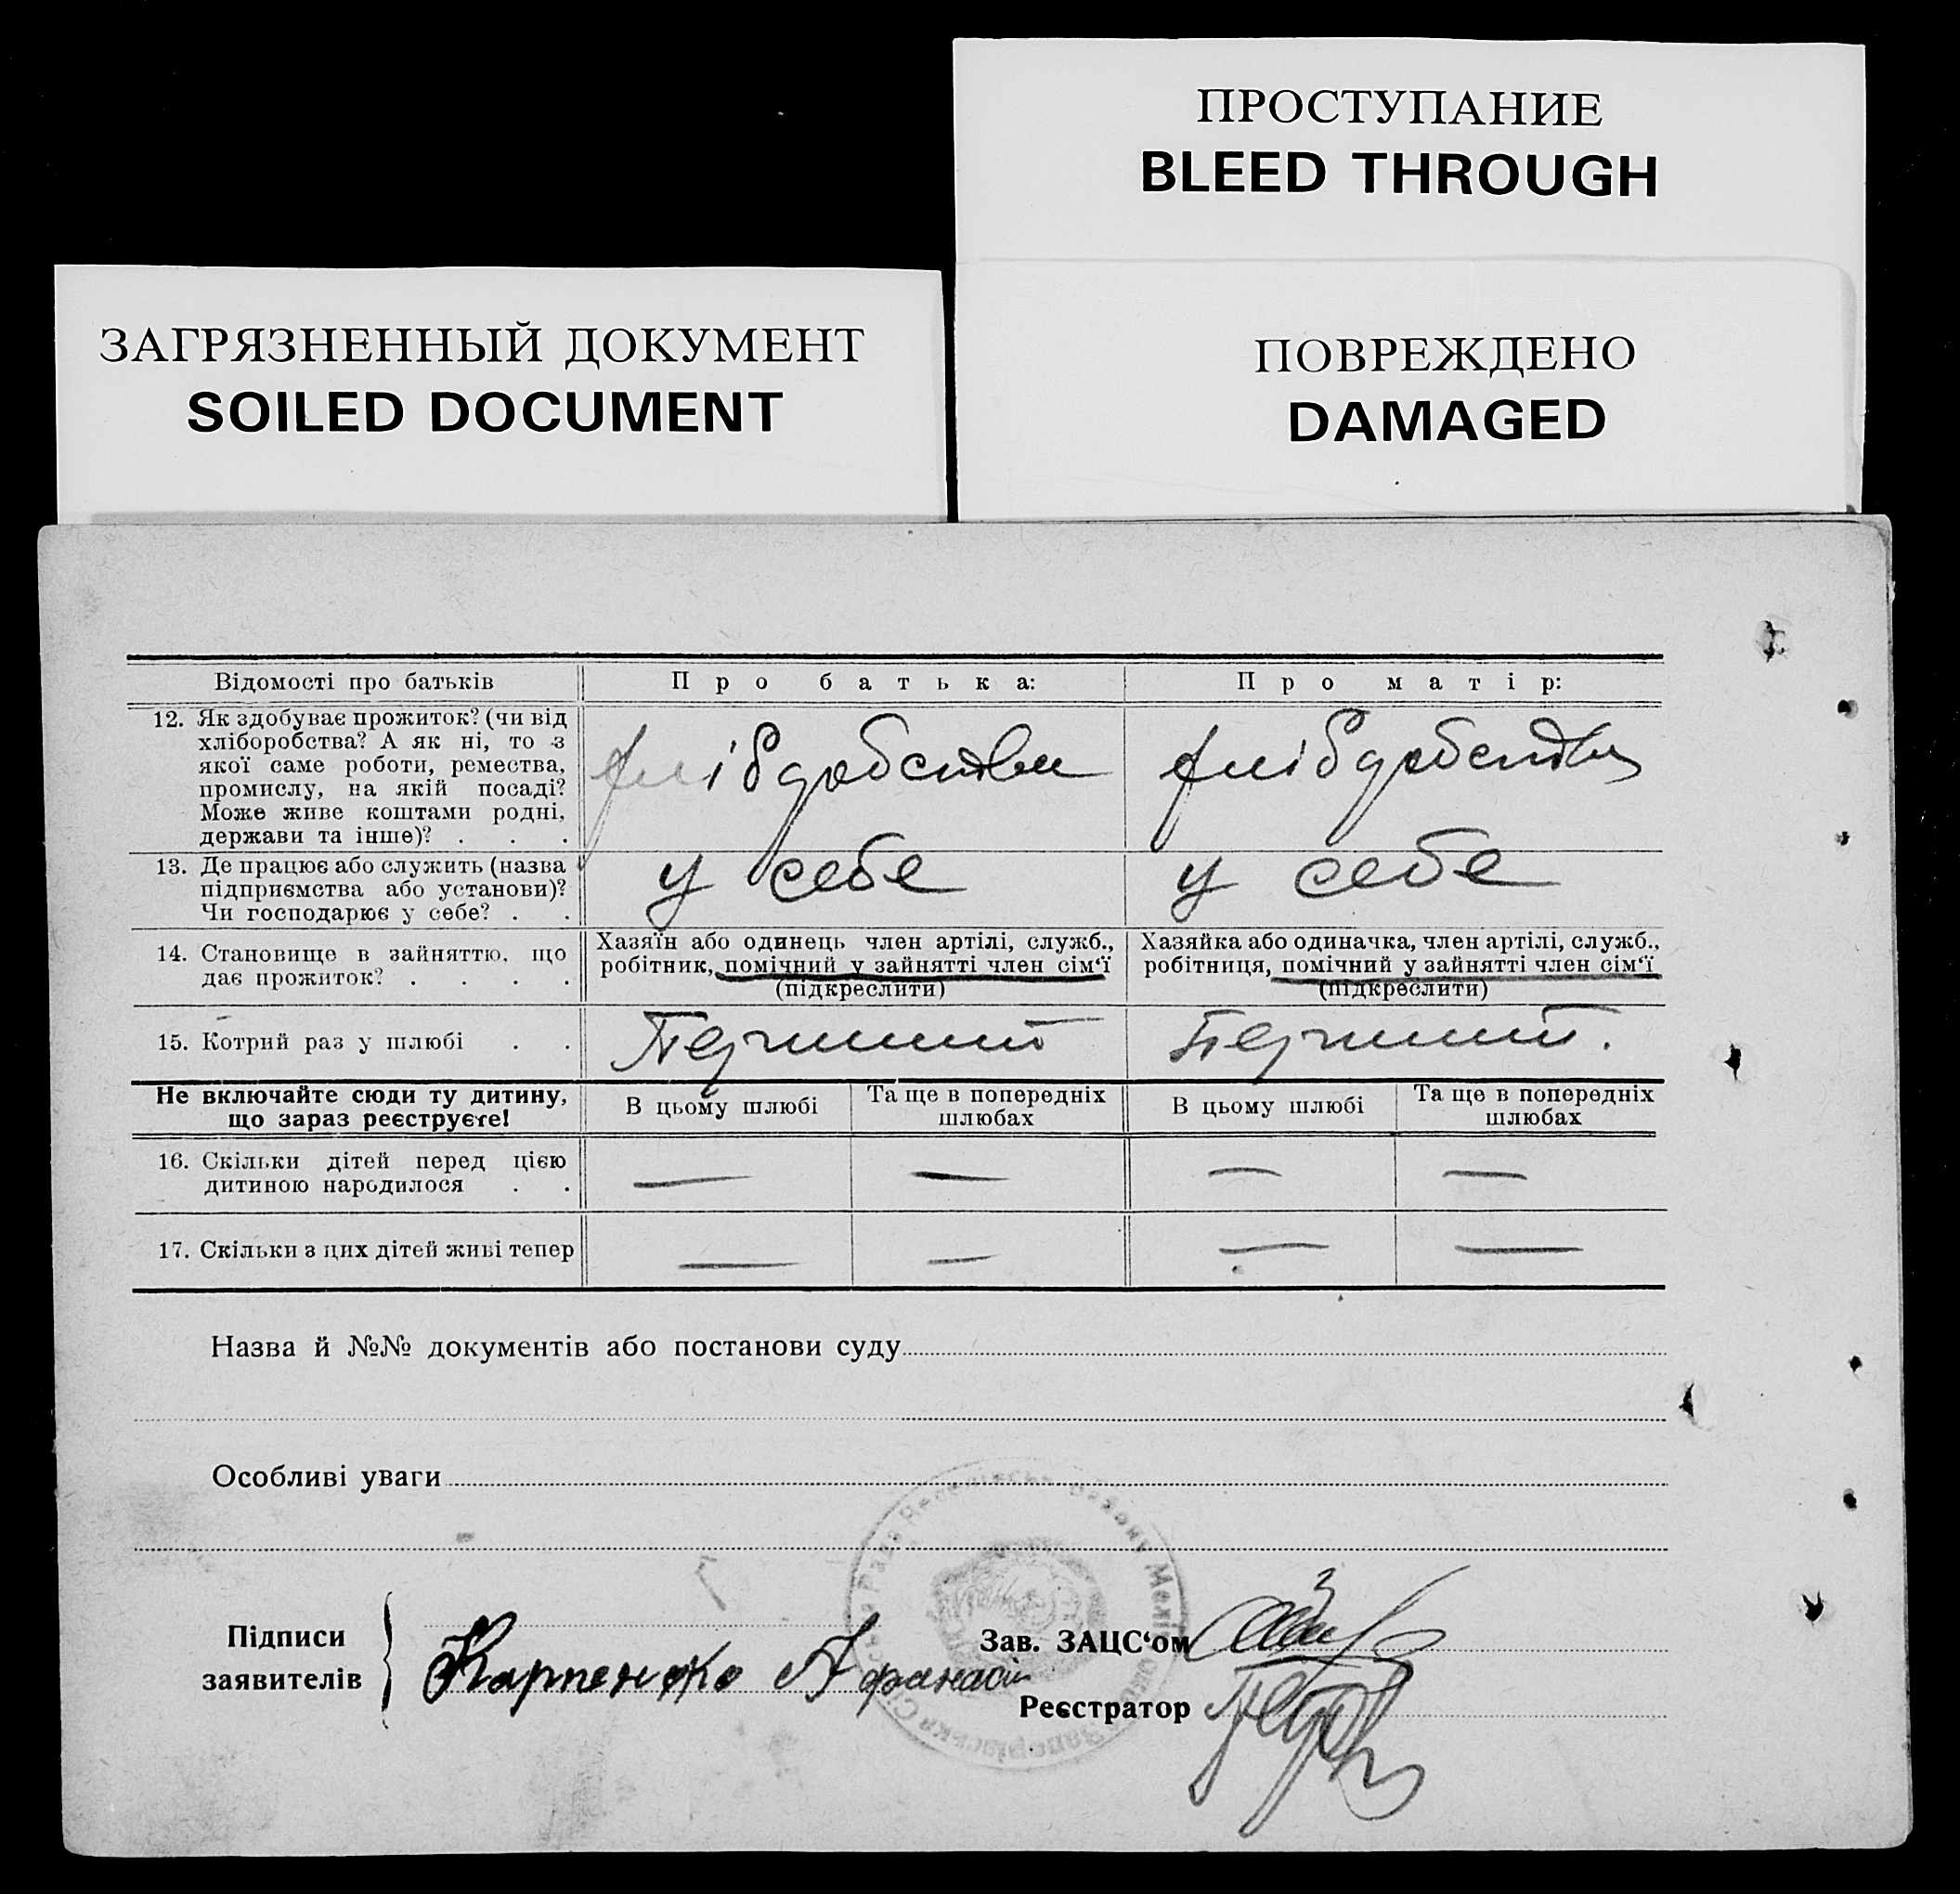 ПРОСТУПАНИЕ
BLEED THROUGH
ЗАГРЯЗНЕННЫЙ ДОКУМЕНТ
SOILED DOCUMENT
ПОВРЕЖДЕНО
DAMAGED
Відомості про батьків
Про батька:
Про матір:
12. Як здобуває прожиток? (чи від
хліборобства? А як ні, то з
якої саме роботи, ремества,
промислу, на якій посаді?
Може живе коштами родні,
держави та інше)? . . .
13. Де працює або служить (назва
підприємства або установи)?
Чи господарює у себе? . .
у себе
у себе
14. Становище в зайняттю, що
дає прожиток? . . . .
Хазяїн або одинець член артілі, служб.,
робітник, помічний у зайнятті член сім‘ї
(підкреслити)
Хазяйка або одиначка, член артілі, служб.,
робітниця, помічний у зайнятті член сім‘ї
(підкреслити)
15. Котрий раз у шлюбі . .
Не включайте сюди ту дитину,
що зараз реєструєте!
В цьому шлюбі
Та ще в попередніх
шлюбах
В цьому шлюбі
Та ще в попередніх
шлюбах
16. Скільки дітей перед цією
дитиною народилося . .
— — — —
17. Скільки з цих дітей живі тепер
— — — —
Назва й №№ документів або постанови суду
Особливі уваги
Підписи
заявителів
Карпенко Афанасій
Зав. ЗАЦС‘ом
Реєстратор